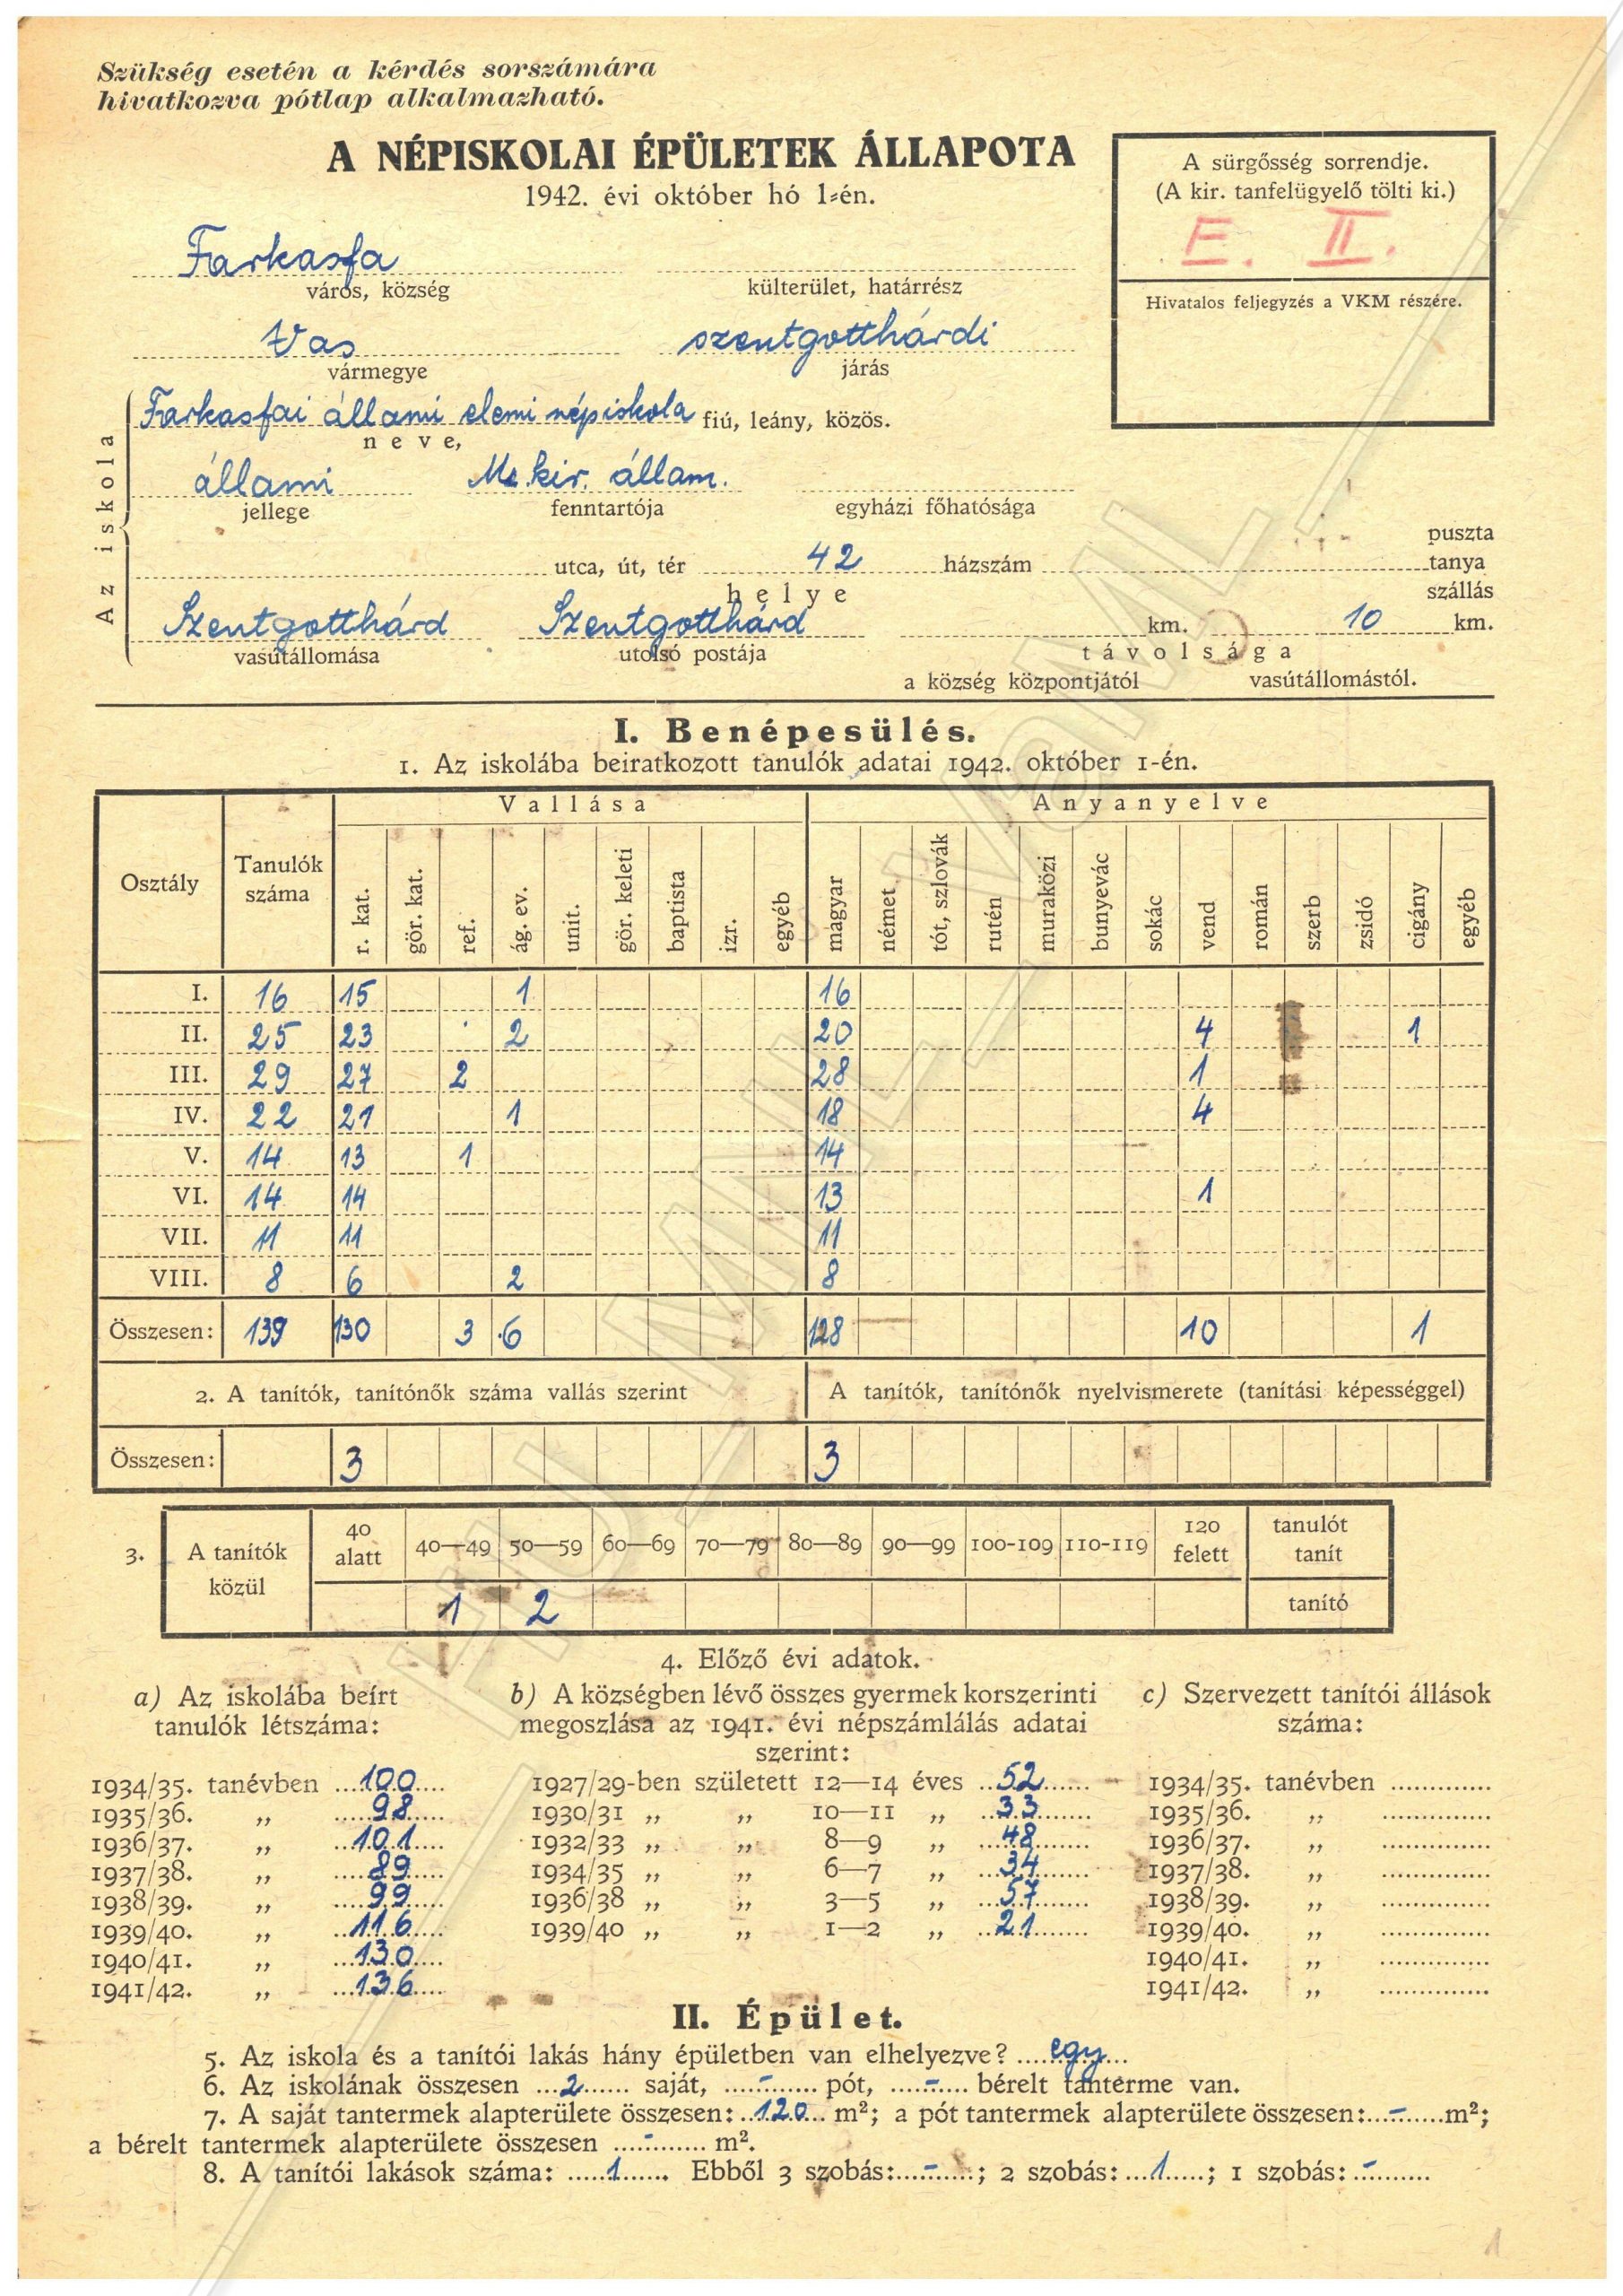 Szükség esetén a kérdés sorszámára
hivatkozva pótlap alkalmazható.
A NÉPISKOLAI ÉPÜLETEK ÁLLAPOTA
1942. évi október hó 1-én.
A sürgősség sorrendje.
(A kir. tanfelügyelő tölti ki.)
E. II.
Hivatalos feljegyzés a VKM részére.
Farkasfa
város, község külterület, határrész
Vas szentgotthárdi
vármegye járás
Az iskola
Farkasfai állami elemi népiskola fiú, leány, közös.
neve,
állami M. kir. állam.
jellege fenntartója egyházi főhatósága
puszta
utca, út, tér 42 házszám tanya
helye szállás
Szentgotthárd Szentgotthárd km. 10 km.
vasútállomása utolsó postája távolsága
a község központjától vasútállomástól.
I. Benépesülés.
1. Az iskolába beiratkozott tanulók adatai 1942. október 1-én.
Osztály Tanulók száma Vallása Anyanyelve
r. kat. gör. kat. ref. ág. ev. unit. gör. keleti baptista izr. egyéb magyar német tót, szlovák rutén muraközi bunyevác sokác vend román szerb zsidó cigány egyéb
I. 16 15 1 16
II. 25 23 2 20 4 1
III. 29 27 2 28 1
IV. 22 21 1 18 4
V. 14 13 1 14
VI. 14 14 13 1
VII. 11 11 11
VIII. 8 6 2 8
Összesen: 139 130 3 6 128 10 1
2. A tanítók, tanítónők száma vallás szerint A tanítók, tanítónők nyelvismerete (tanítási képességgel)
Összesen: 3 3
3. A tanítók közül 40 alatt 40—49 50—59 60—69 70—79 80—89 90—99 100-109 110-119 120 felett tanulót tanít
1 2 tanító
4. Előző évi adatok.
a) Az iskolába beírt tanulók létszáma:
1934/35. tanévben 100
1935/36. „ 98
1936/37. „ 101
1937/38. „ 89
1938/39. „ 99
1939/40. „ 116
1940/41. „ 130
1941/42. „ 136
b) A községben lévő összes gyermek korszerinti
megoszlása az 1941. évi népszámlálás adatai
szerint:
1927/29-ben született 12—14 éves 52
1930/31 „ „ 10—11 „ 33
1932/33 „ „ 8—9 „ 48
1934/35 „ „ 6—7 „ 34
1936/38 „ „ 3—5 „ 57
1939/40 „ „ 1—2 „ 21
c) Szervezett tanítói állások
száma:
1934/35. tanévben
1935/36. „
1936/37. „
1937/38. „
1938/39. „
1939/40. „
1940/41. „
1941/42. „
II. Épület.
5. Az iskola és a tanítói lakás hány épületben van elhelyezve? egy
6. Az iskolának összesen 2 saját, - pót, - bérelt tanterme van.
7. A saját tantermek alapterülete összesen: 120 m²; a pót tantermek alapterülete összesen: - m²;
a bérelt tantermek alapterülete összesen - m².
8. A tanítói lakások száma: 1 Ebből 3 szobás: - ; 2 szobás: 1 ; 1 szobás: -
1
HU_MNL_VaML